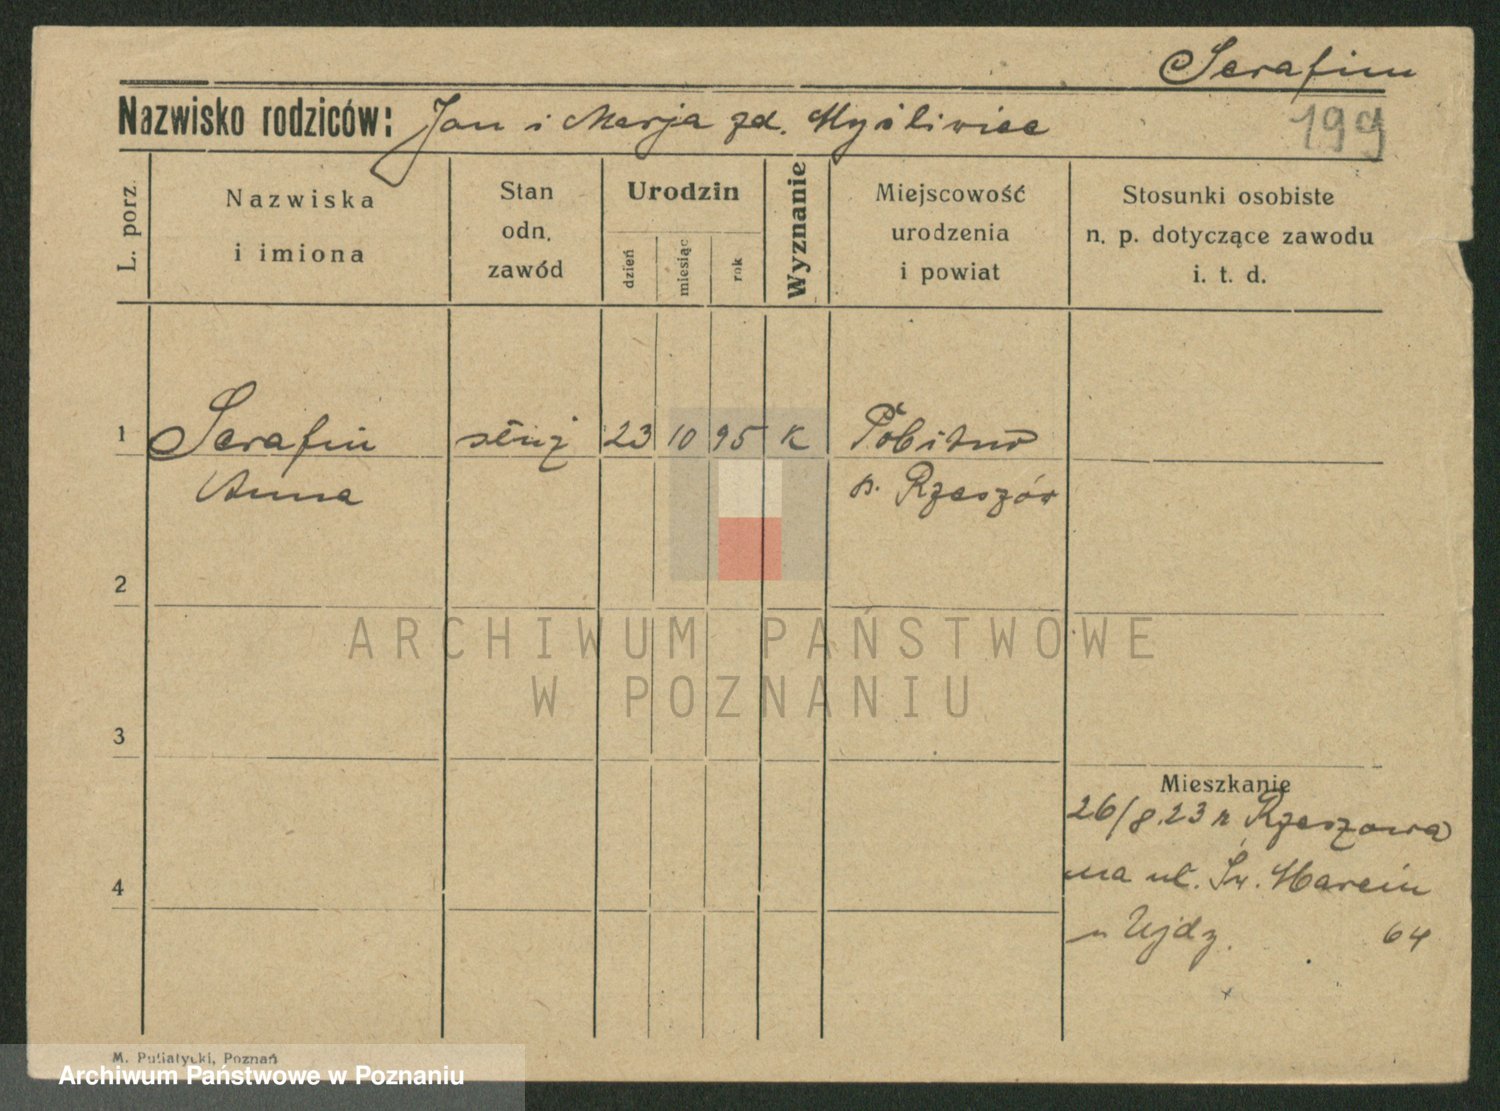 Serafin
199
Nazwisko rodziców: Jan i Marja zd. Myśliwiec
L. porz.
Nazwiska
i imiona
Stan
odn.
zawód
Urodzin
dzień
miesiąc
rok
Wyznanie
Miejscowość
urodzenia
i powiat
Stosunki osobiste
n. p. dotyczące zawodu
i. t. d.
1 Serafin służ 23 10 95 K Pobitno
Anna p. Rzeszów
2
ARCHIWUM PAŃSTWOWE
W POZNANIU
3
Mieszkanie
26/8.23 z Rzeszowa
na ul. Św. Marcin
u Ujdy. 64
4
M. Putiatycki, Poznań
Archiwum Państwowe w Poznaniu